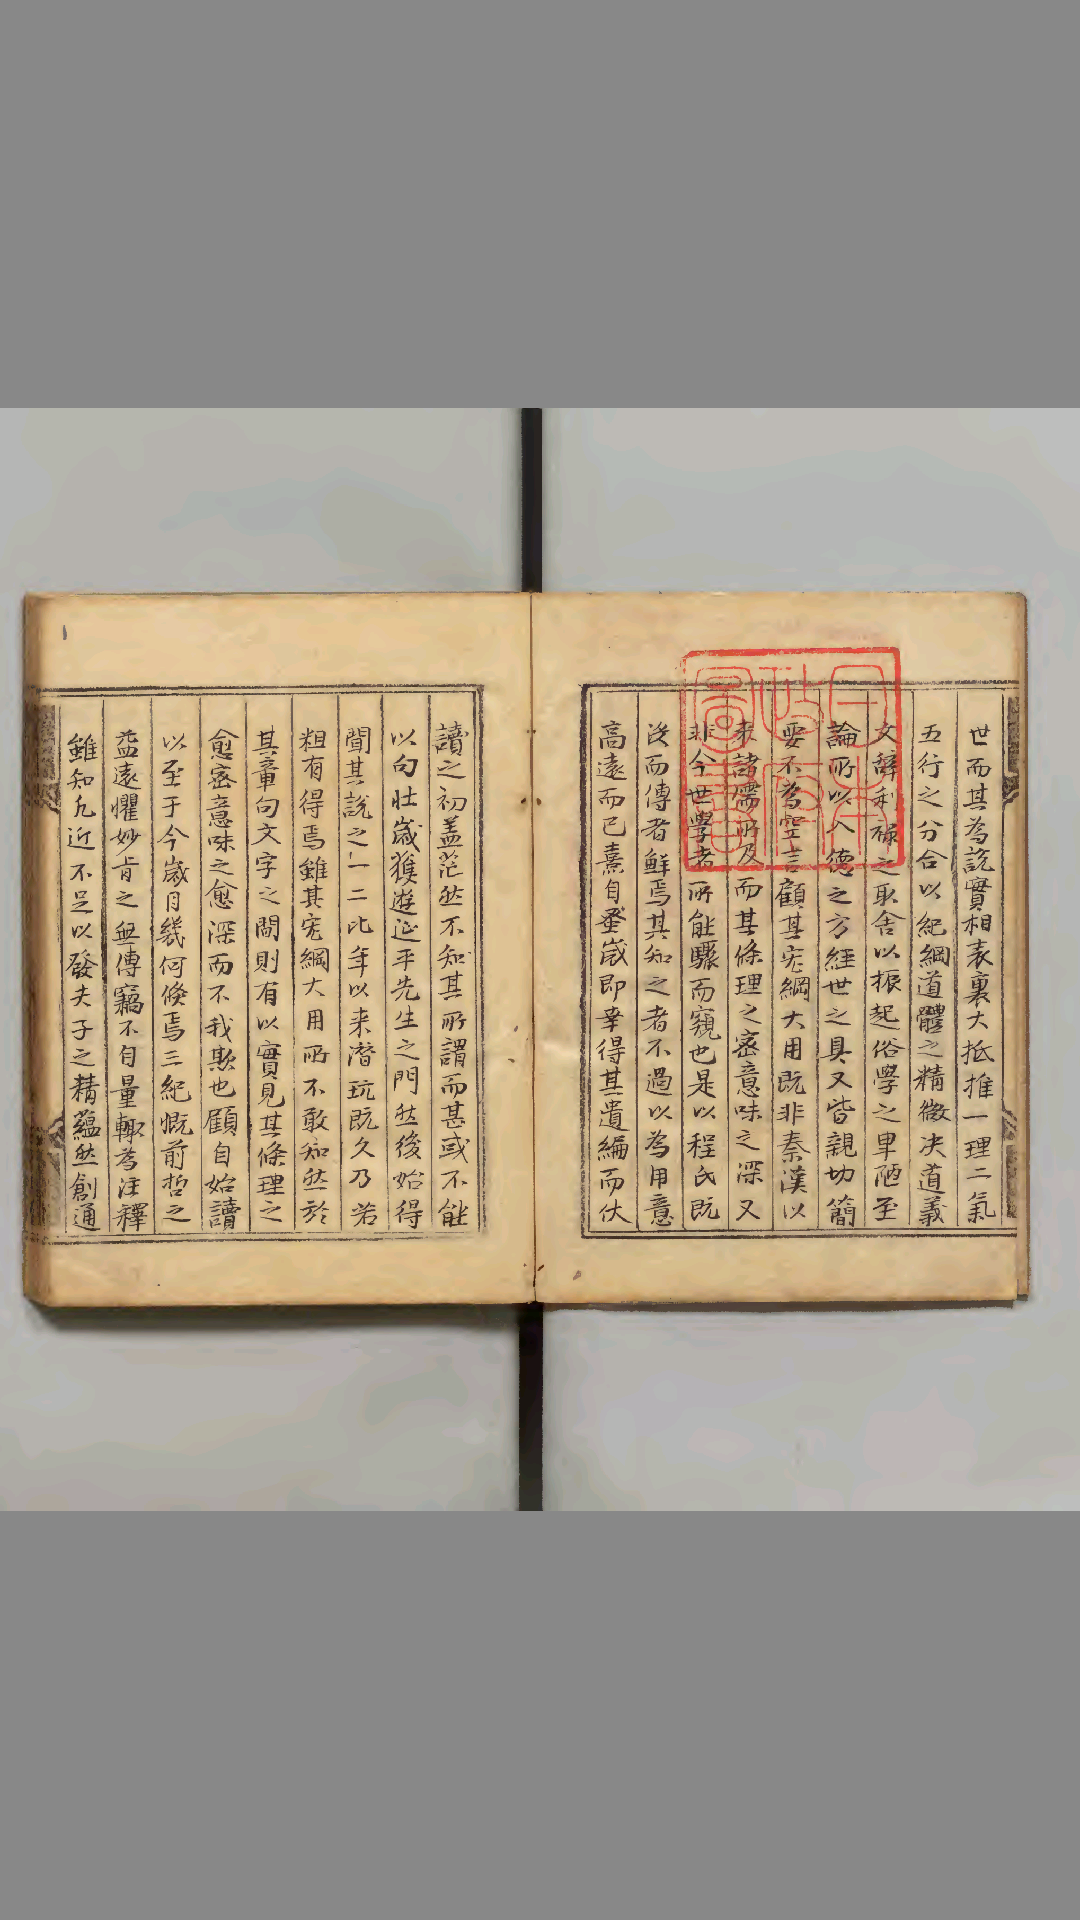 世而其為說實相表裏大抵推一理二氣
五行之分合以紀綱道體之精微决道義
文辭利祿之取舍以振起俗學之卑陋至
論所以入德之方經世之具又皆親切簡
要不為空言顧其宏綱大用既非秦漢以
來諸儒所及而其條理之密意味之深又
非今世學者所能驟而窺也是以程氏既
沒而傳者鮮焉其知之者不過以為用意
高遠而已熹自蚤歲即幸得其遺編而伏
讀之初盖茫然不知其所謂而甚或不能
以句壯歲獲遊延平先生之門然後始得
聞其說之一二比年以来潛玩既久乃若
粗有得焉雖其宏綱大用所不敢知然於
其章句文字之間則有以實見其條理之
愈密意味之愈深而不我欺也顧自始讀
以至于今歲月幾何倏焉三紀慨前哲之
益遠懼妙旨之無傳竊不自量輒為注釋
雖知凡近不足以發夫子之精蘊然創通